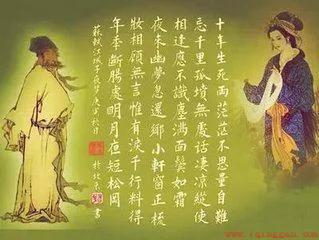 十年生死兩茫茫不思量自難
忘千里孤墳無處話凄凉縱使
相逢應不識塵滿面鬢如霜
夜来幽夢忽還鄉小軒窗正梳
妝相顧無言惟有淚千行料得
年年斷腸處明月夜短松岡
蘇軾江城子夜夢庚寅秋日
書